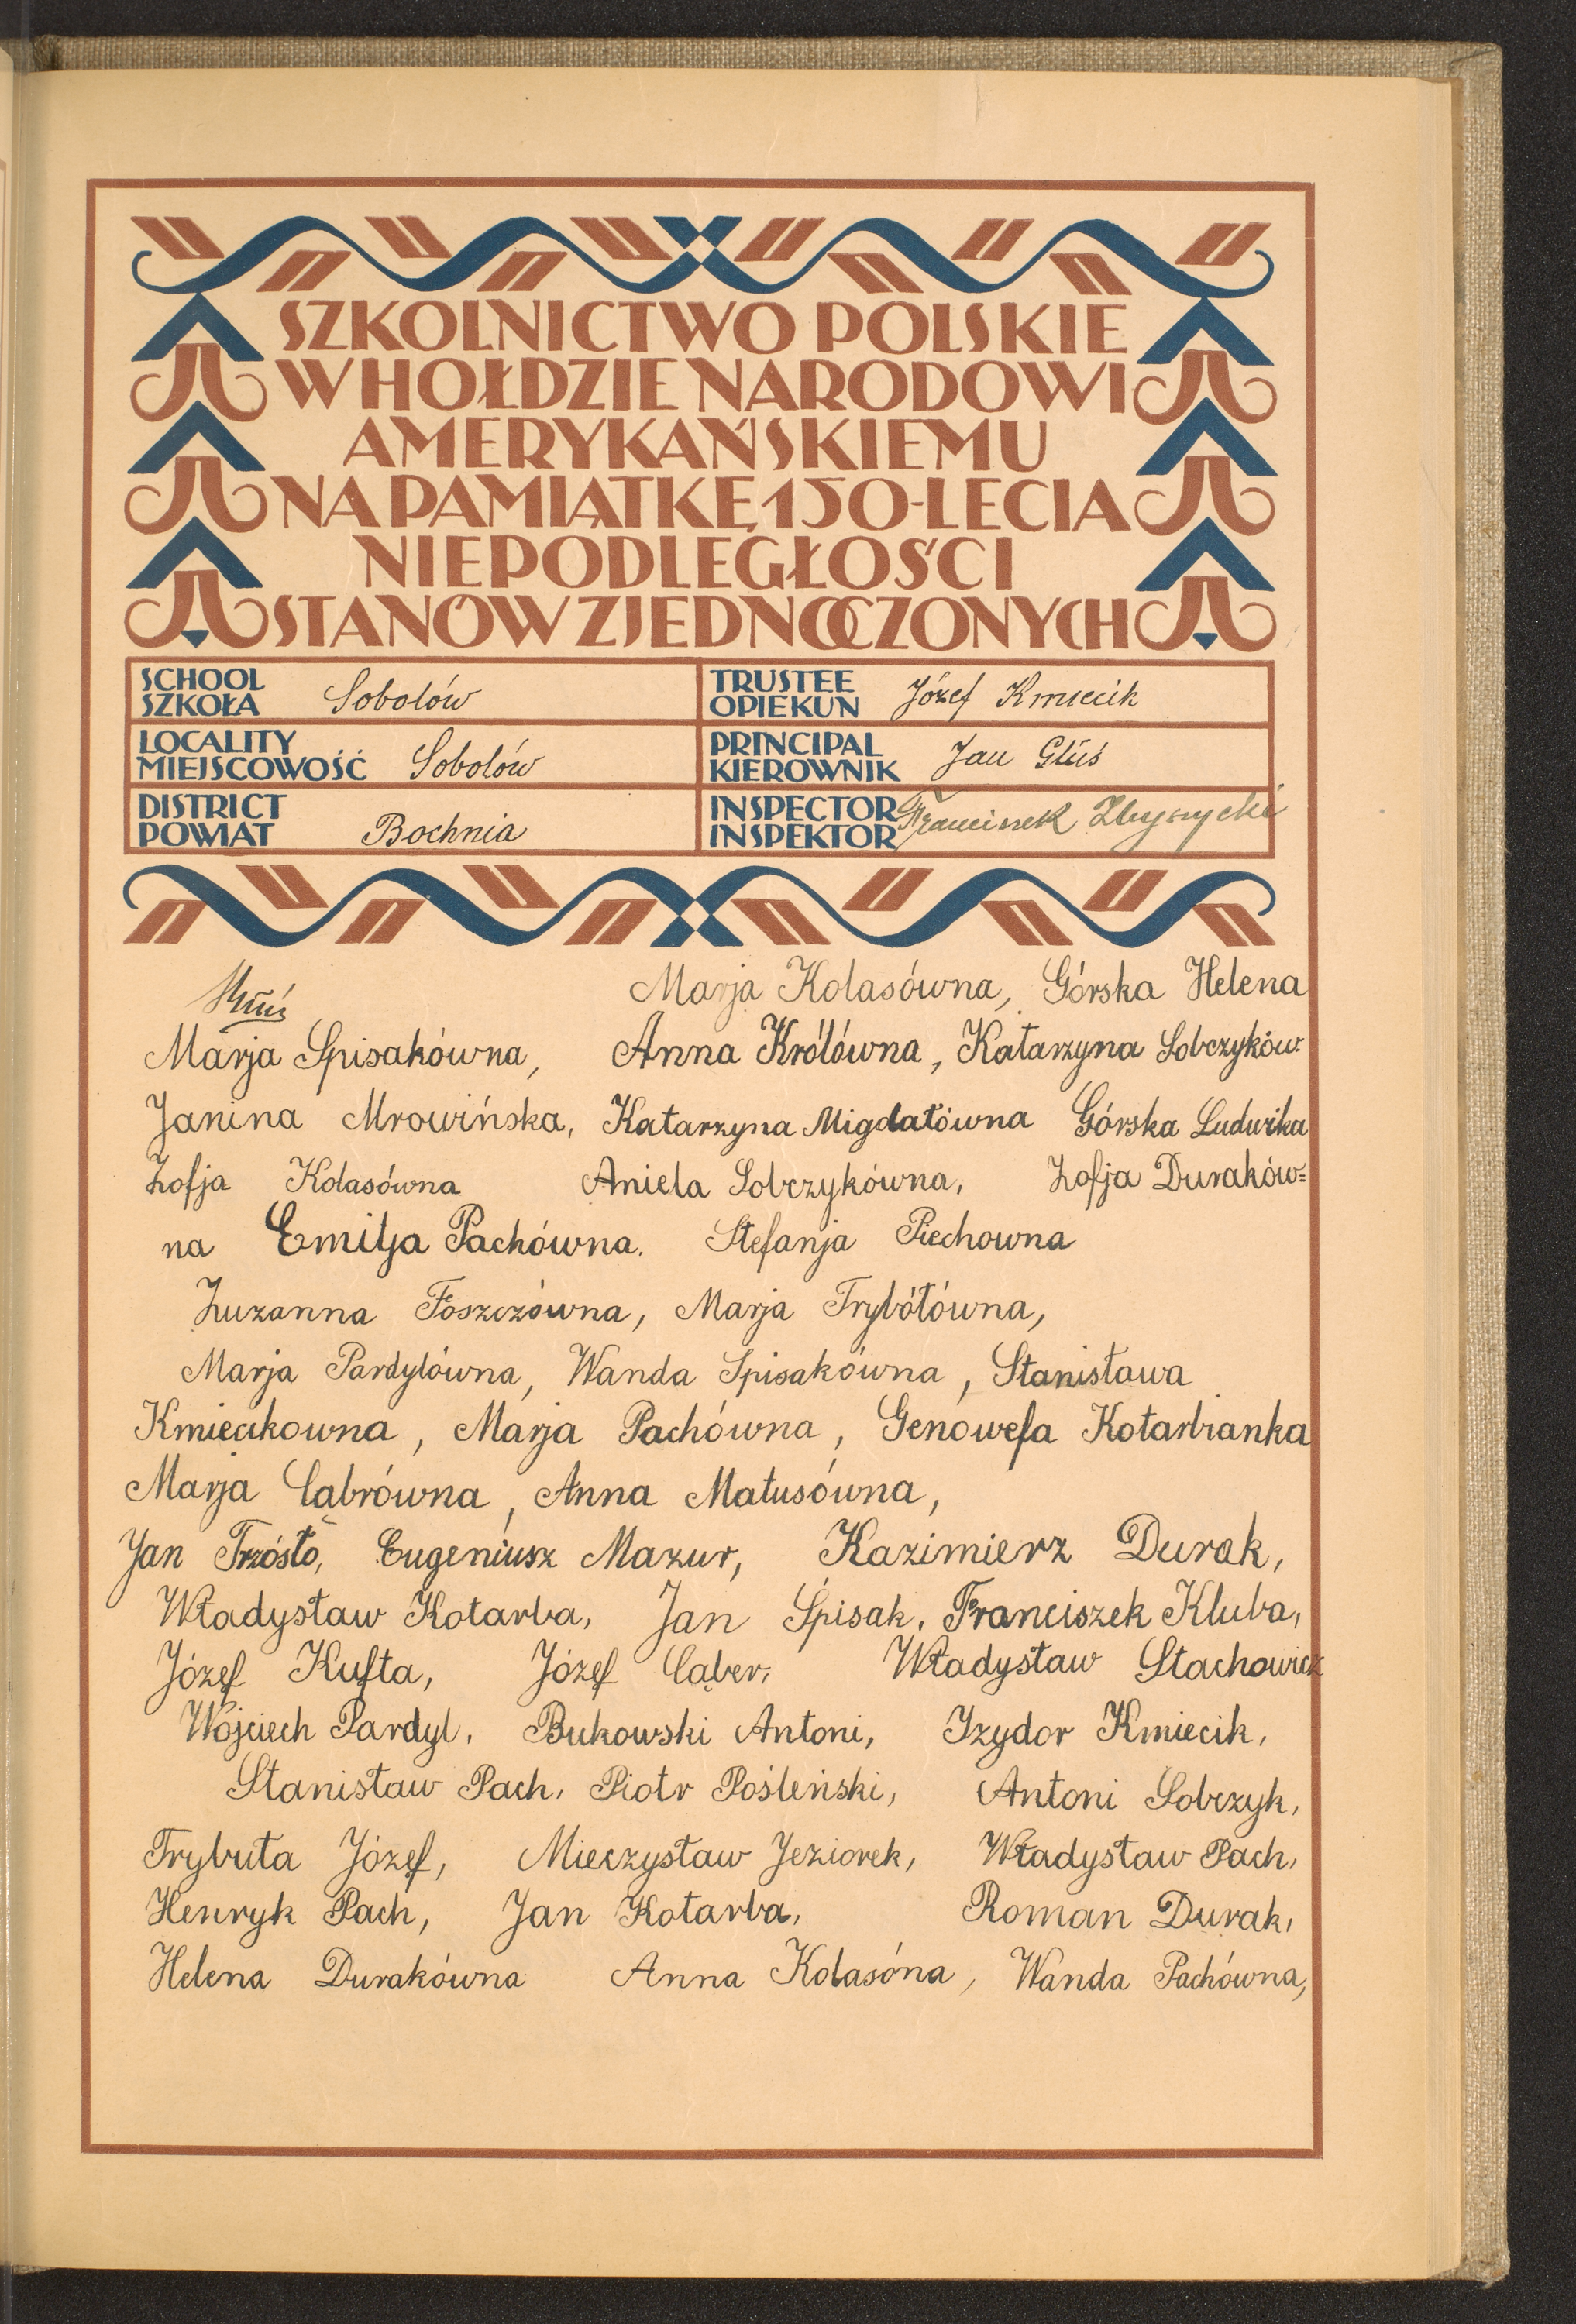 SZKOLNICTWO POLSKIE
W HOŁDZIE NARODOWI
AMERYKAŃSKIEMU
NA PAMIĄTKĘ 150-LECIA
NIEPODLEGŁOŚCI
STANÓW ZJEDNOCZONYCH
SCHOOL
SZKOŁA Sobolów
TRUSTEE
OPIEKUN Józef Kmiecik
LOCALITY
MIEJSCOWOŚĆ Sobolów
PRINCIPAL
KIEROWNIK Jan Głuś
DISTRICT
POWIAT Bochnia
INSPECTOR
INSPEKTOR Franciszek
Marja Kolasówna, Górska Helena
Marja Spisakówna, Anna Królówna, Katarzyna Sobczyków
Janina Mrowińska, Katarzyna Migdałówna Górska Ludwika
Zofja Kolasówna Aniela Sobczykówna, Zofja Duraków=
na Emilja Pachówna. Stefanja Piechowna
Zuzanna Foszczówna, Marja Trybółówna,
Marja Pardylówna, Wanda Spisakówna, Stanisława
Kmiecikowna, Marja Pachówna, Genowefa Kotarbianka
Marja Cabrówna, Anna Matusówna,
Jan Trzósło, Eugeniusz Mazur, Kazimierz Durak,
Władysław Kotarba, Jan Śpisak, Franciszek Kluba,
Józef Kufta, Józef Caber, Władysław Stachowicz
Wojciech Pardyl, Bukowski Antoni, Izydor Kmiecik,
Stanisław Pach, Piotr Pośleński, Antoni Sobczyk,
Trybuła Józef, Mieczysław Jeziorek, Władysław Pach,
Henryk Pach, Jan Kotarba, Roman Durak,
Helena Durakówna Anna Kolasóna, Wanda Pachówna,